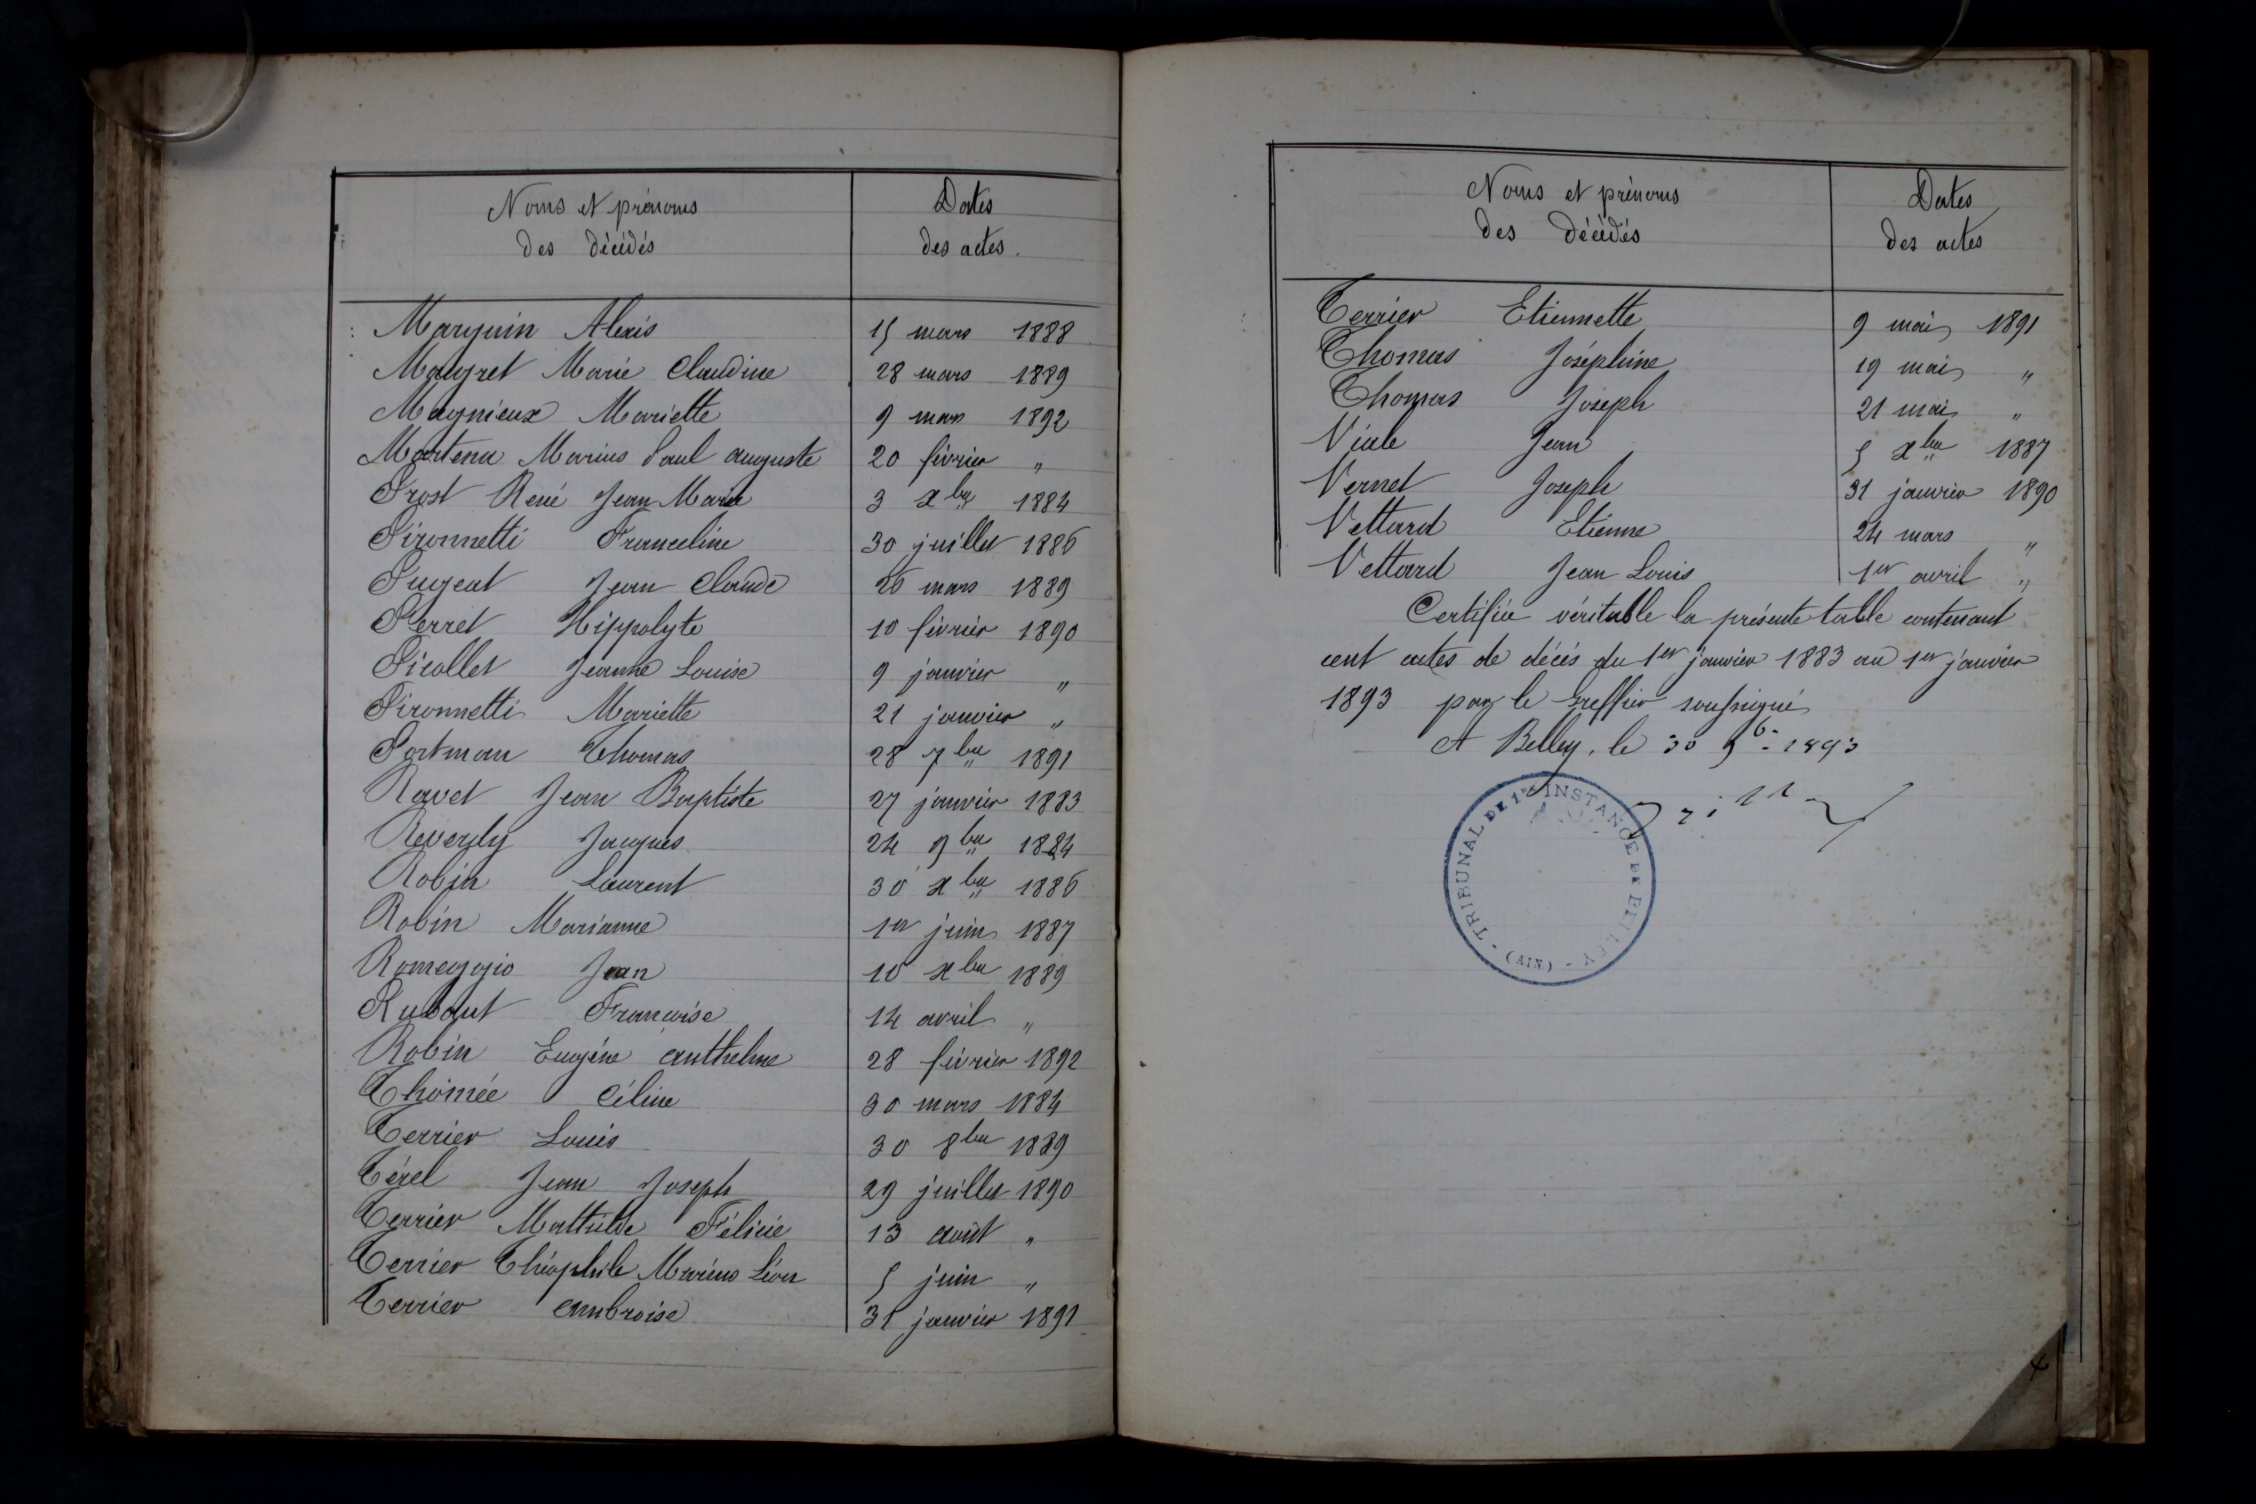 Noms et prénoms
des décédés
Dates
des actes.
Marquin Alexis 15 mars 1888
Maugret Marie Claudine 28 mars 1889
Magnieux Mariette 9 mars 1892
Martena Marius Paul auguste 20 février "
Prost René Jean Marie 3 xbre 1884
Pironnetti Franceline 30 juillet 1886
Pugeat Jean Claude 26 mars 1889
Perret Hippolyte 10 février 1890
Picollet Jeanne Louise 9 janvier "
Pironnetti Mariette 21 janvier "
Portman Thomas 28 7bre 1891
Ravet Jean Baptiste 27 janvier 1883
Reverdy Jacques 24 9bre 1884
Robin Laurent 30 xbre 1886
Robin Marianne 1er juin 1887
Romaggio Jean 10 xbre 1889
Rubaut Françoise 14 avril "
Robin Eugène anthelme 28 février 1892
Thomée Céline 30 mars 1884
Terrier Louis 30 8bre 1889
Térel Jean Joseph 29 juillet 1890
Terrier Mathilde Félicie 13 août "
Terrier Théophile Marius Léon 5 juin "
Terrier ambroise 31 janvier 1891
Noms et prénoms
des décédés
Dates
des actes
Terrier Etiennette 9 mai 1891
Thomas Joséphine 19 mai "
Thomas Joseph 21 mai "
Viale Jean 5 xbre 1887
Vernet Joseph 31 janvier 1890
Vettard Etienne 24 mars "
Vettard Jean Louis 1er avril "
Certifiée véritable la présente table contenant
cent actes de décès du 1er janvier 1883 au 1er janvier
1893 par le Greffier soussigné
A Belley, le 30 9b 1893
TRIBUNAL DE 1re INSTANCE DE BELLEY
(AIN)